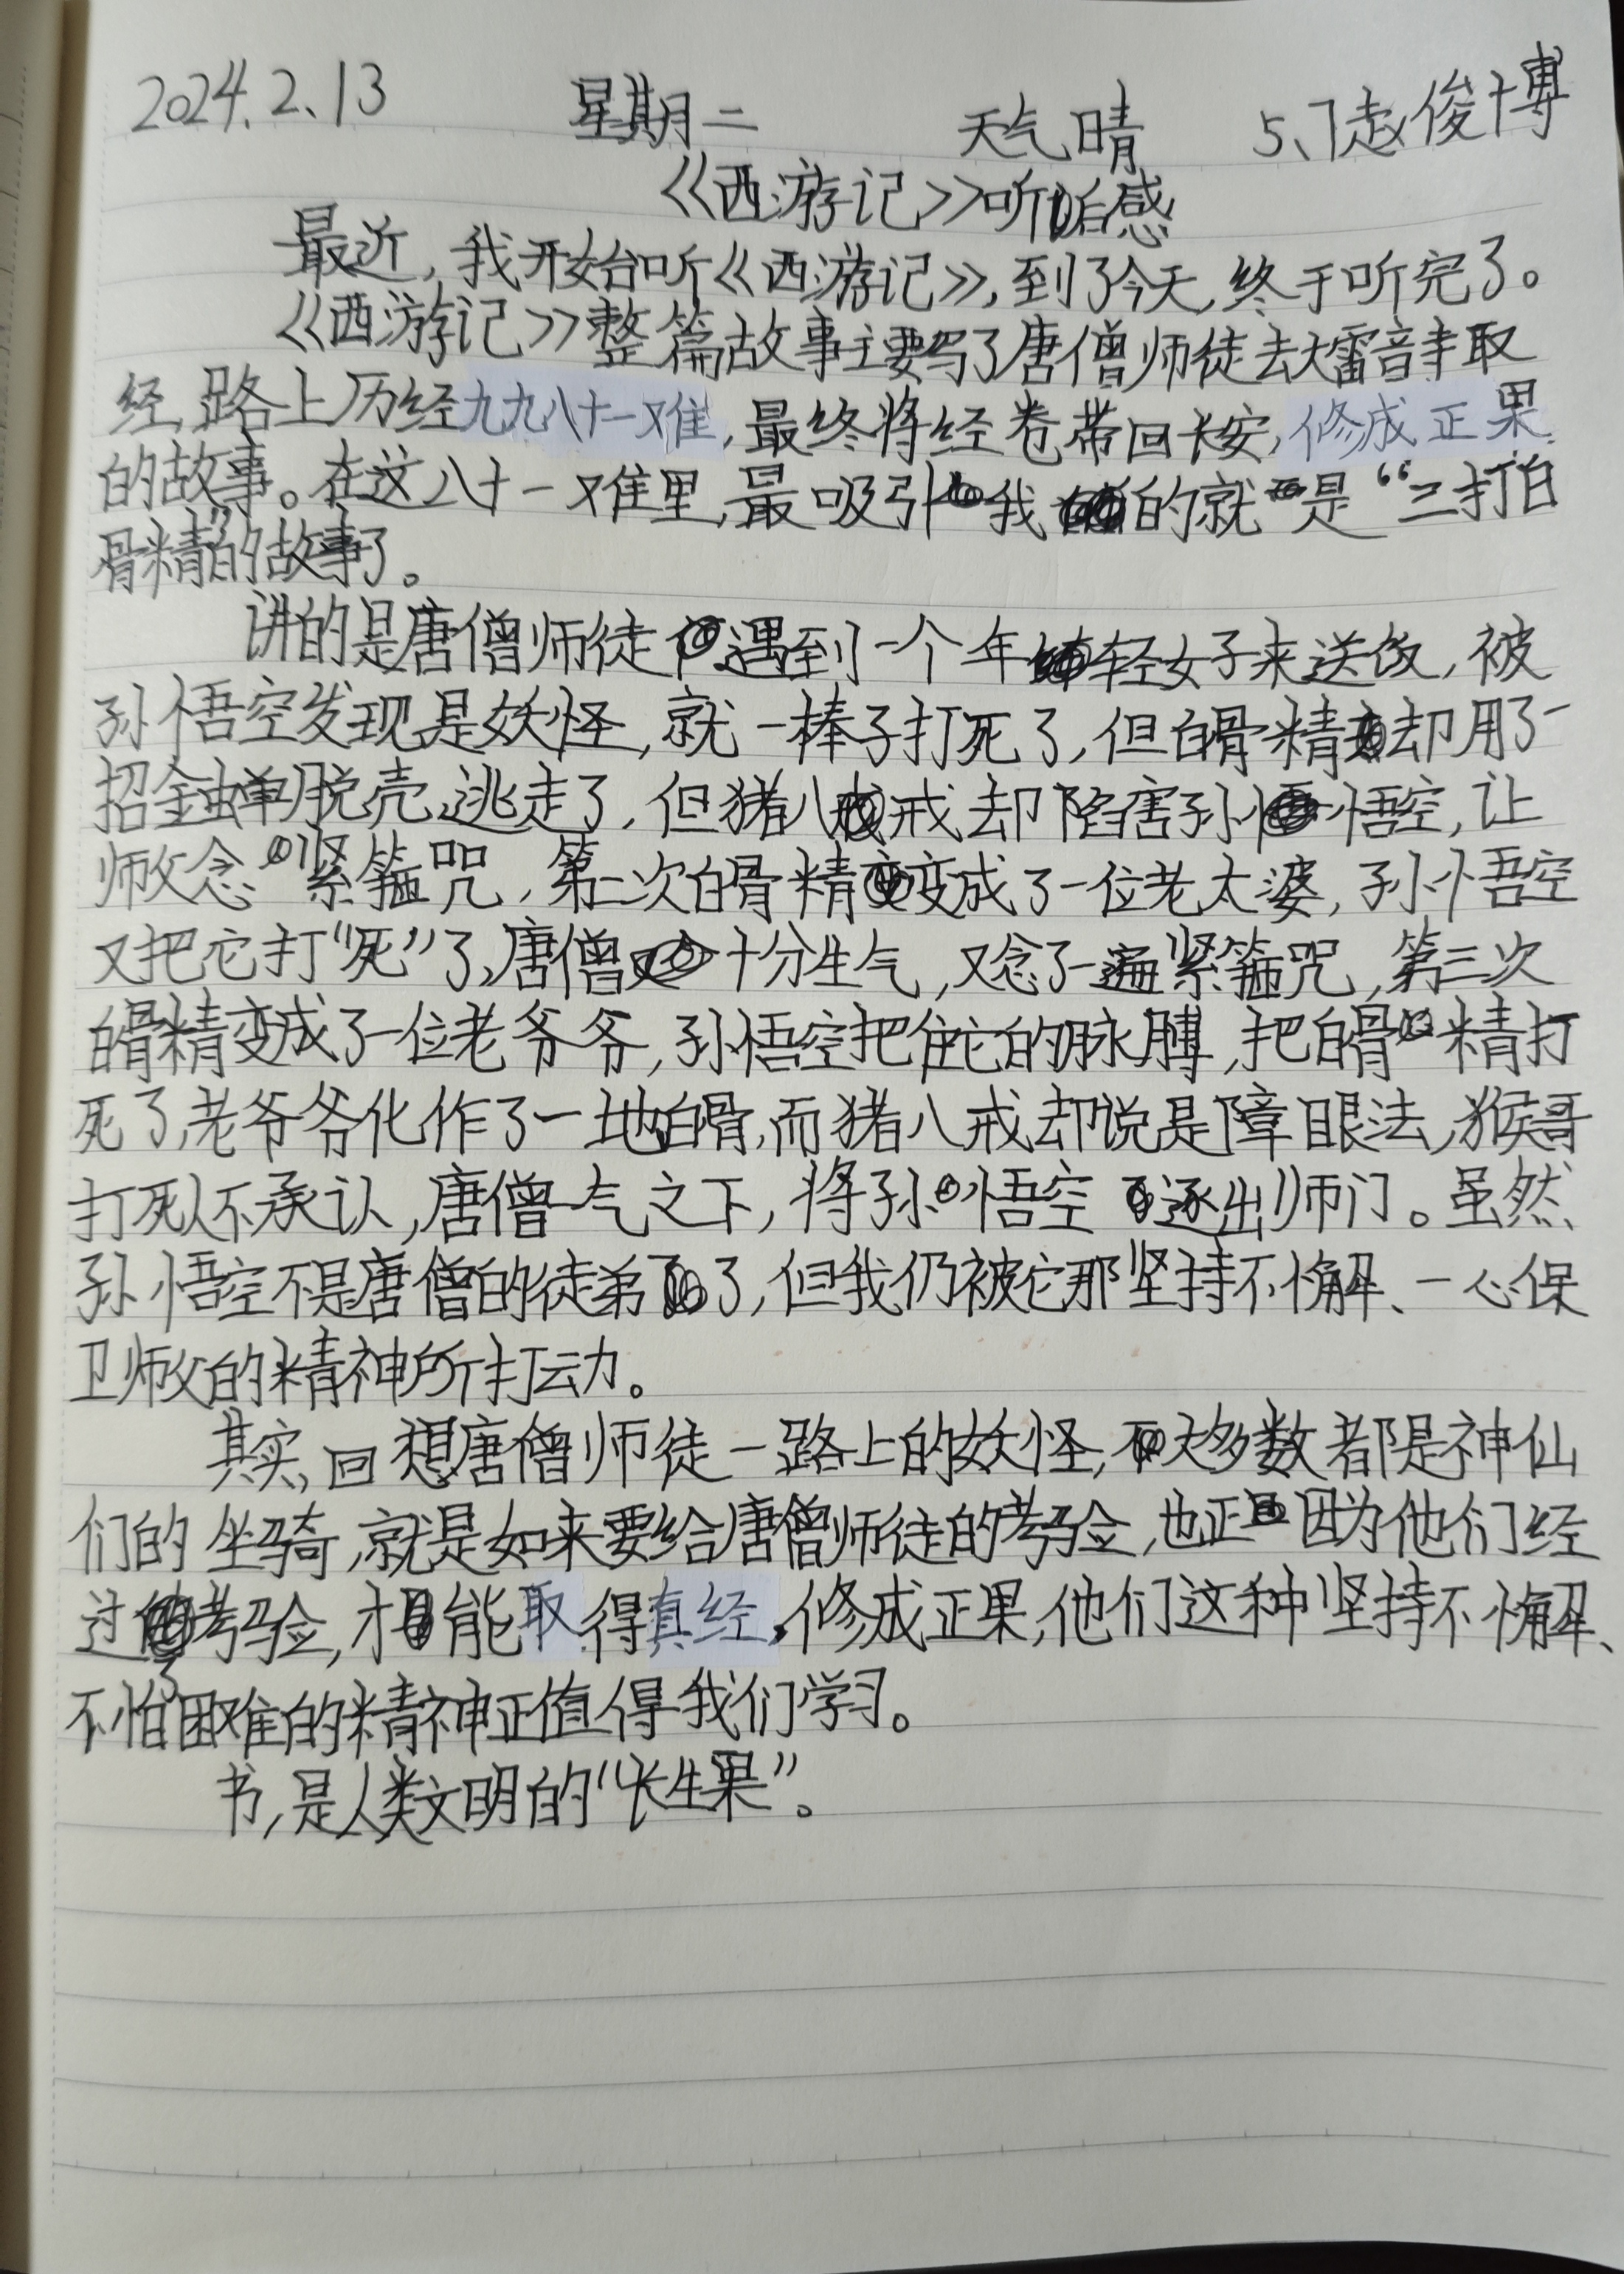 2024.2、13 星期二 天气晴 5、7赵俊博
《西游记》听后感
最近，我开始听《西游记》，到了今天，终于听完了。
《西游记》整篇故事主要写了唐僧师徒去大雷音寺取
经，路上历经九九八十一难，最终将经卷带回长安，修成正果
的故事。在这八十一难里，最吸引我的就是“三打白
骨精”的故事了。
讲的是唐僧师徒遇到一个年轻女子来送饭，被
孙悟空发现是妖怪，就一棒子打死了，但白骨精却用了一
招金蝉脱壳，逃走了，但猪八戒却陷害孙悟空，让
师父念紧箍咒，第二次白骨精变成了一位老太婆，孙悟空
又把它打“死”了，唐僧十分生气，又念了一遍紧箍咒，第三次
白骨精变成了一位老爷爷，孙悟空把住它的脉膊，把白骨精打
死了，老爷爷化作了一地白骨，而猪八戒却说是障眼法，猴哥
打死人不承认，唐僧一气之下，将孙悟空逐出师门。虽然
孙悟空不是唐僧的徒弟了，但我仍被它那坚持不懈、一心保
卫师父的精神所打动。
其实，回想唐僧师徒一路上的妖怪，大多数都是神仙
们的坐骑，就是如来要给唐僧师徒的考验，也正是因为他们经
过了考验，才能取得真经，修成正果，他们这种坚持不懈、
不怕困难的精神正值得我们学习。
书，是人类文明的“长生果”。